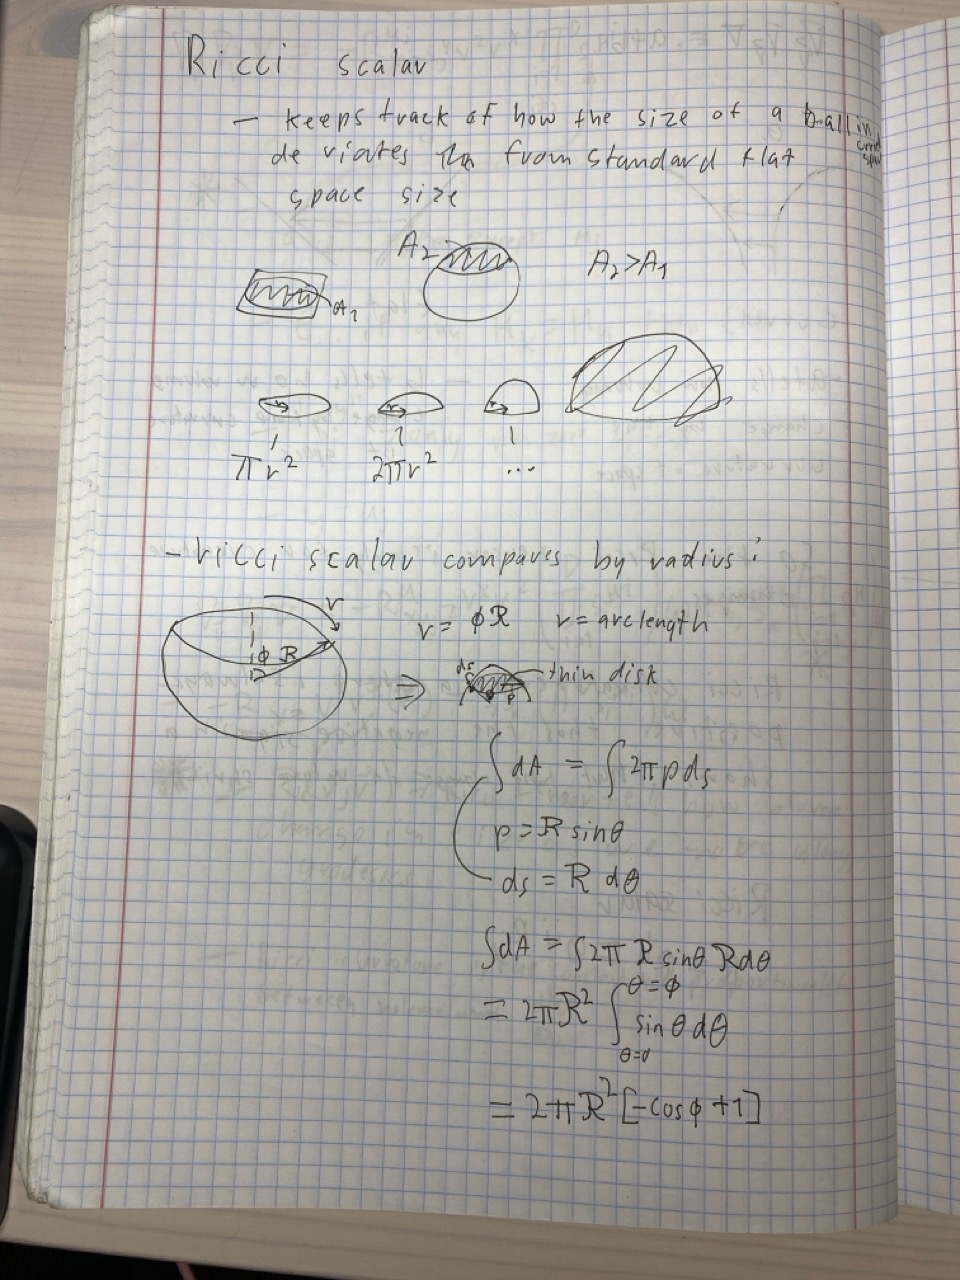 Ricci scalar
- keeps track of how the size of a ball in
deviates from standard flat
space size
A2
A₂>A₁
A₁
r r r
πr² 2πr² ...
- ricci scalar compares by radius:
r
r= ϕR r= arc length
ϕ R
ds thin disk
⇒
p
∫dA = ∫2πpds
p=R sinθ
ds = R dθ
∫dA = ∫2π R sinθ Rdθ
θ=ϕ
= 2πR² ∫ sin θ dθ
θ=0
= 2πR² [-cosϕ +1]